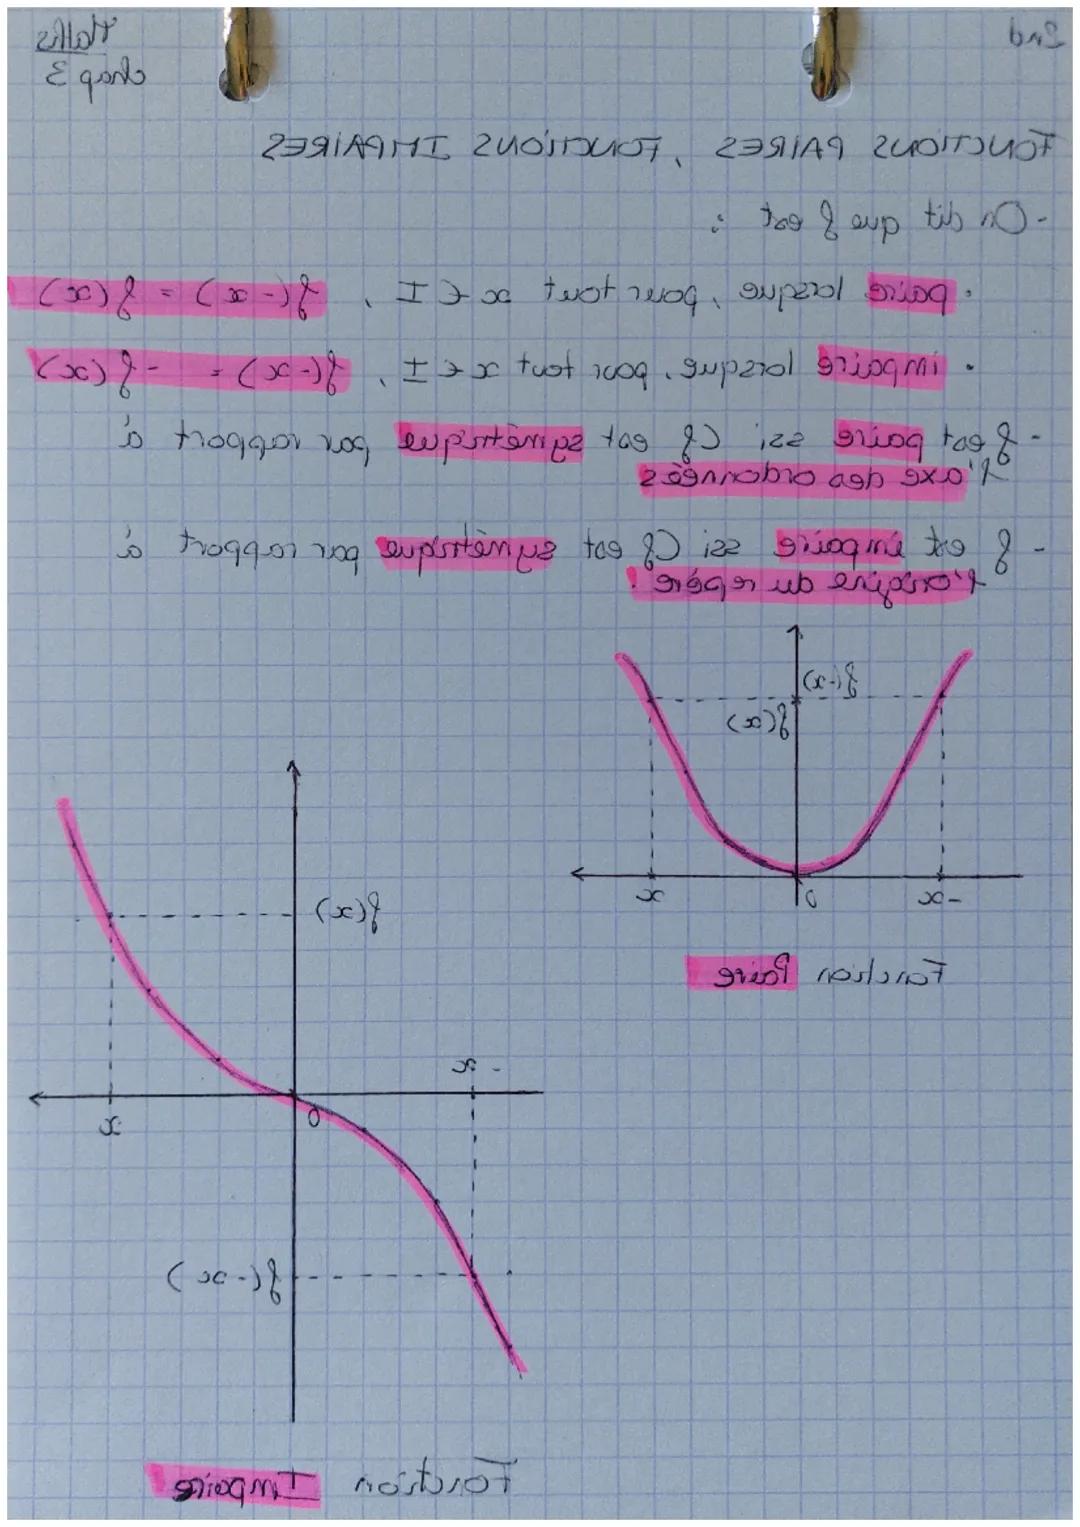 2nd
Maths
chap 3
FONCTIONS PAIRES, FONCTIONS IMPAIRES
- On dit que f est :
• paire lorsque, pour tout x ∈ I, f(-x) = f(x)
• impaire lorsque, pour tout x ∈ I, f(-x) = - f(x)
- f est paire ssi Cf est symétrique par rapport à
l'axe des ordonnées
- f est impaire ssi Cf est symétrique par rapport à
l'origine du repère !
f(-x)
f(x)
-x 0 x
Fonction Paire
f(x)
-x
0 x
f(-x)
Fonction Impaire